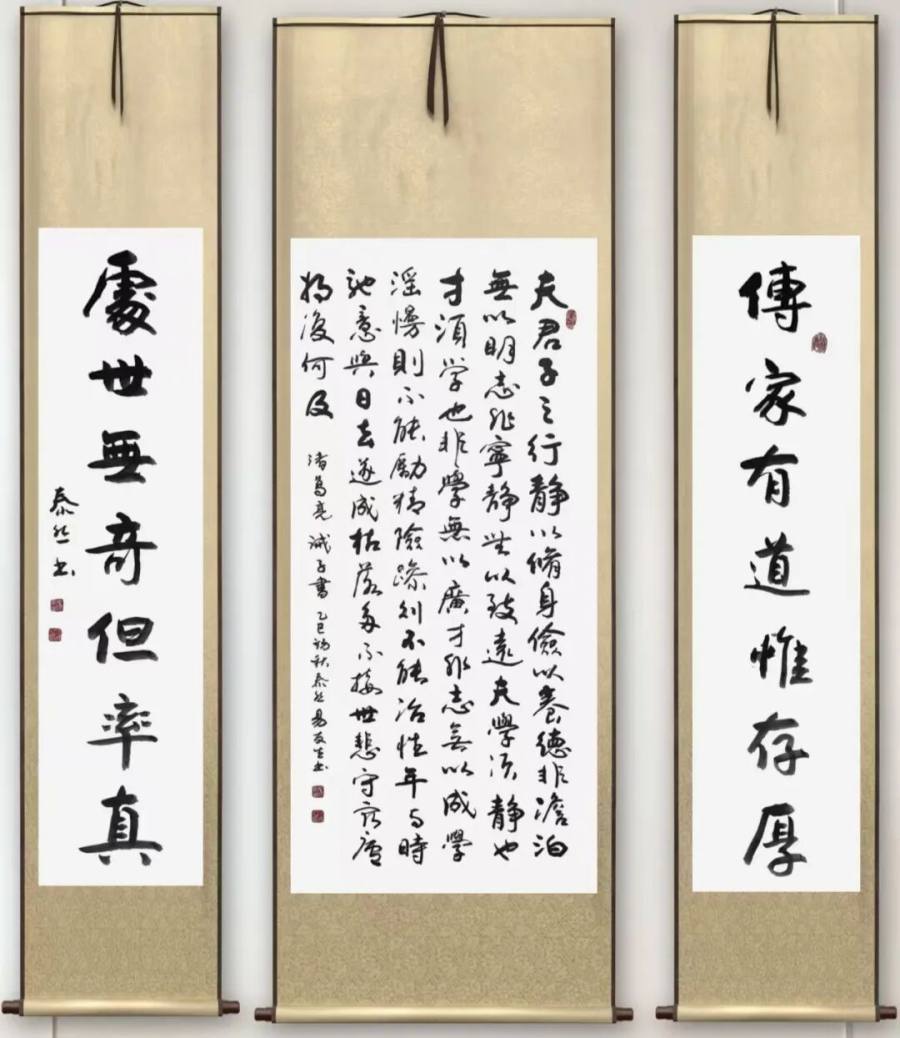 傳家有道惟存厚
夫君子之行靜以脩身儉以養德非澹泊
無以明志非寧靜無以致遠夫學須靜也
才須学也非學無以廣才非志無以成學
淫慢則不能勵精險躁則不能冶性年与時
馳意與日去遂成枯落多不接世悲守窮廬
將復何及
诸葛亮诫子書乙巳初秋泰然易友生书
處世無奇但率真
泰然书